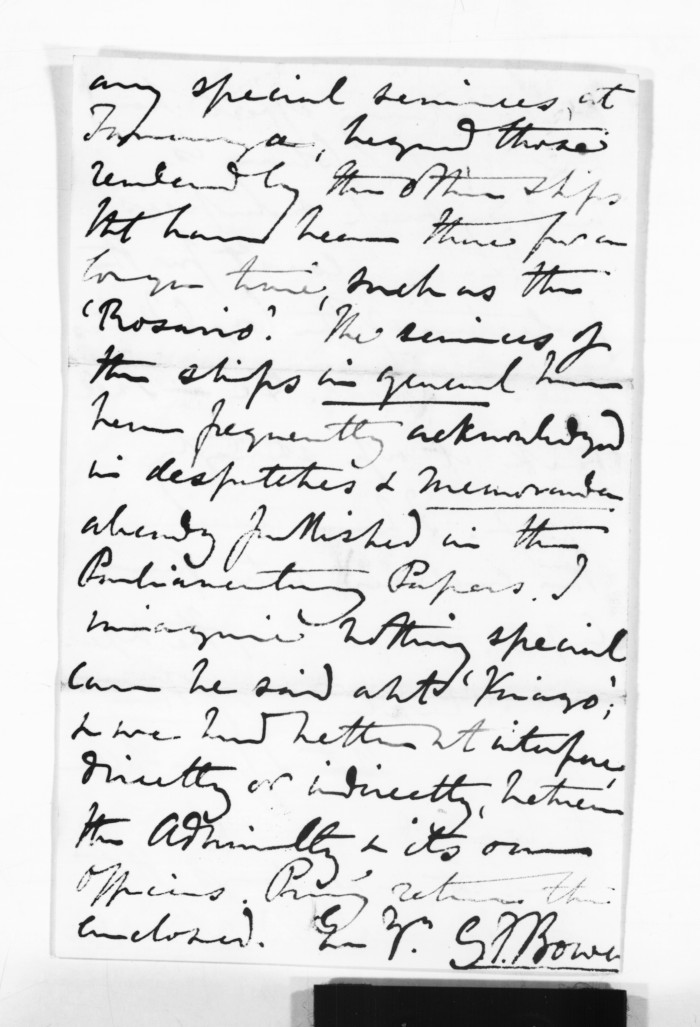 any special services, at
Tauranga, beyond those
rendered by the other ships
tht have been there for a
longer time, such as the
'Rosario'. The services of
the ships in general have
been frequently acknowledged
in despatches & memoranda
already published in the
Parliamentary Papers. I
imagine nothing special
can be said abt 'Virago';
& we had better nt interfere,
directly or indirectly, between
the Admiralty & its own
officers. Pray return the
enclosed. G.F. Bowen